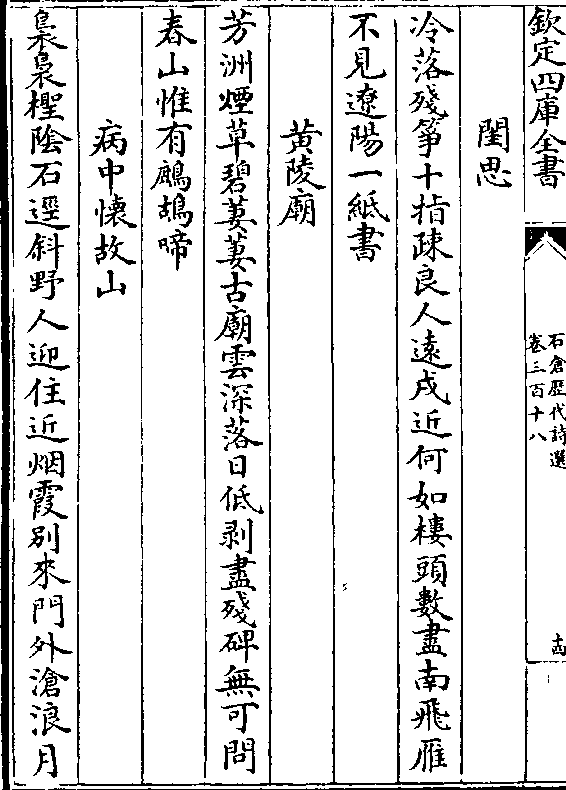 欽定四庫全書
石倉歷代詩選
卷三百十八
十四
閨思
冷落殘箏十指疎良人遠戍近何如樓頭數盡南飛雁
不見遼陽一紙書
黄陵廟
芳洲煙草碧萋萋古廟雲深落日低剥盡殘碑無可問
春山惟有鷓鴣啼
病中懷故山
裊裊檉陰石逕斜野人迎住近烟霞别來門外滄浪月